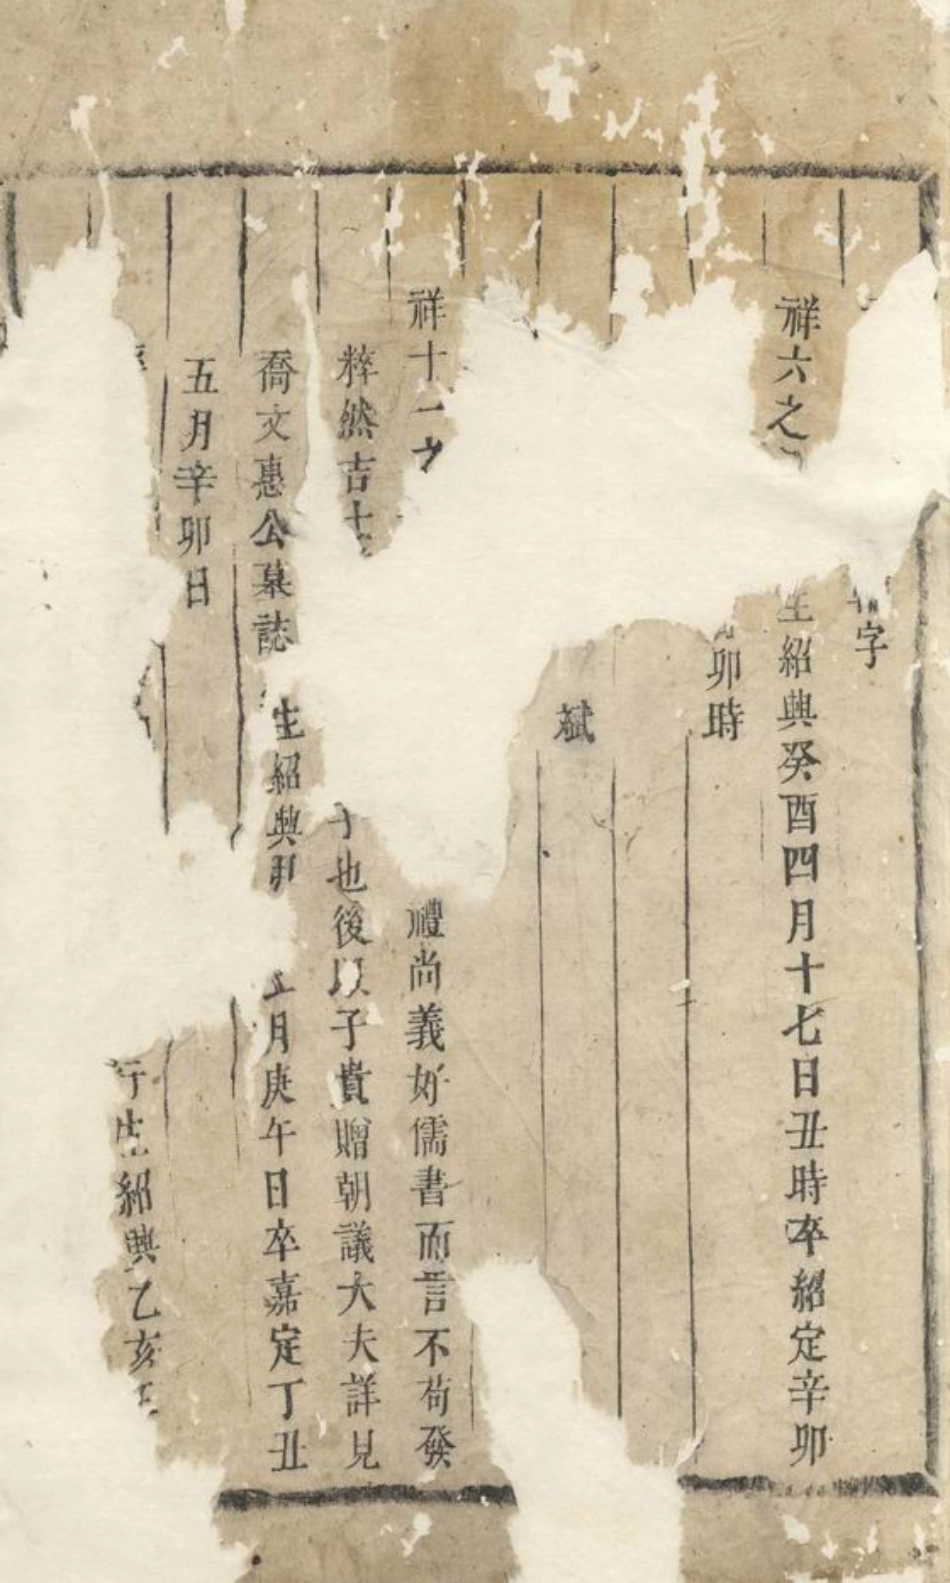 字
祥六之 生紹興癸酉四月十七日丑時卒紹定辛卯
卯時
斌
祥十一之 禮尚義好儒書而言不苟發
粹然吉 也後以子貴贈朝議大夫詳見
喬文惠公墓誌 生紹興 五月庚午日卒嘉定丁丑
五月辛卯日
行生紹興乙亥